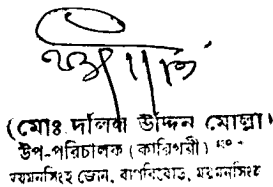 (মোঃ দলিল উদ্দিন মোল্লা)
উপ-পরিচালক (কারিগরী)
ময়মনসিংহ জোন, বাপবিবোর্ড, ময়মনসিংহ